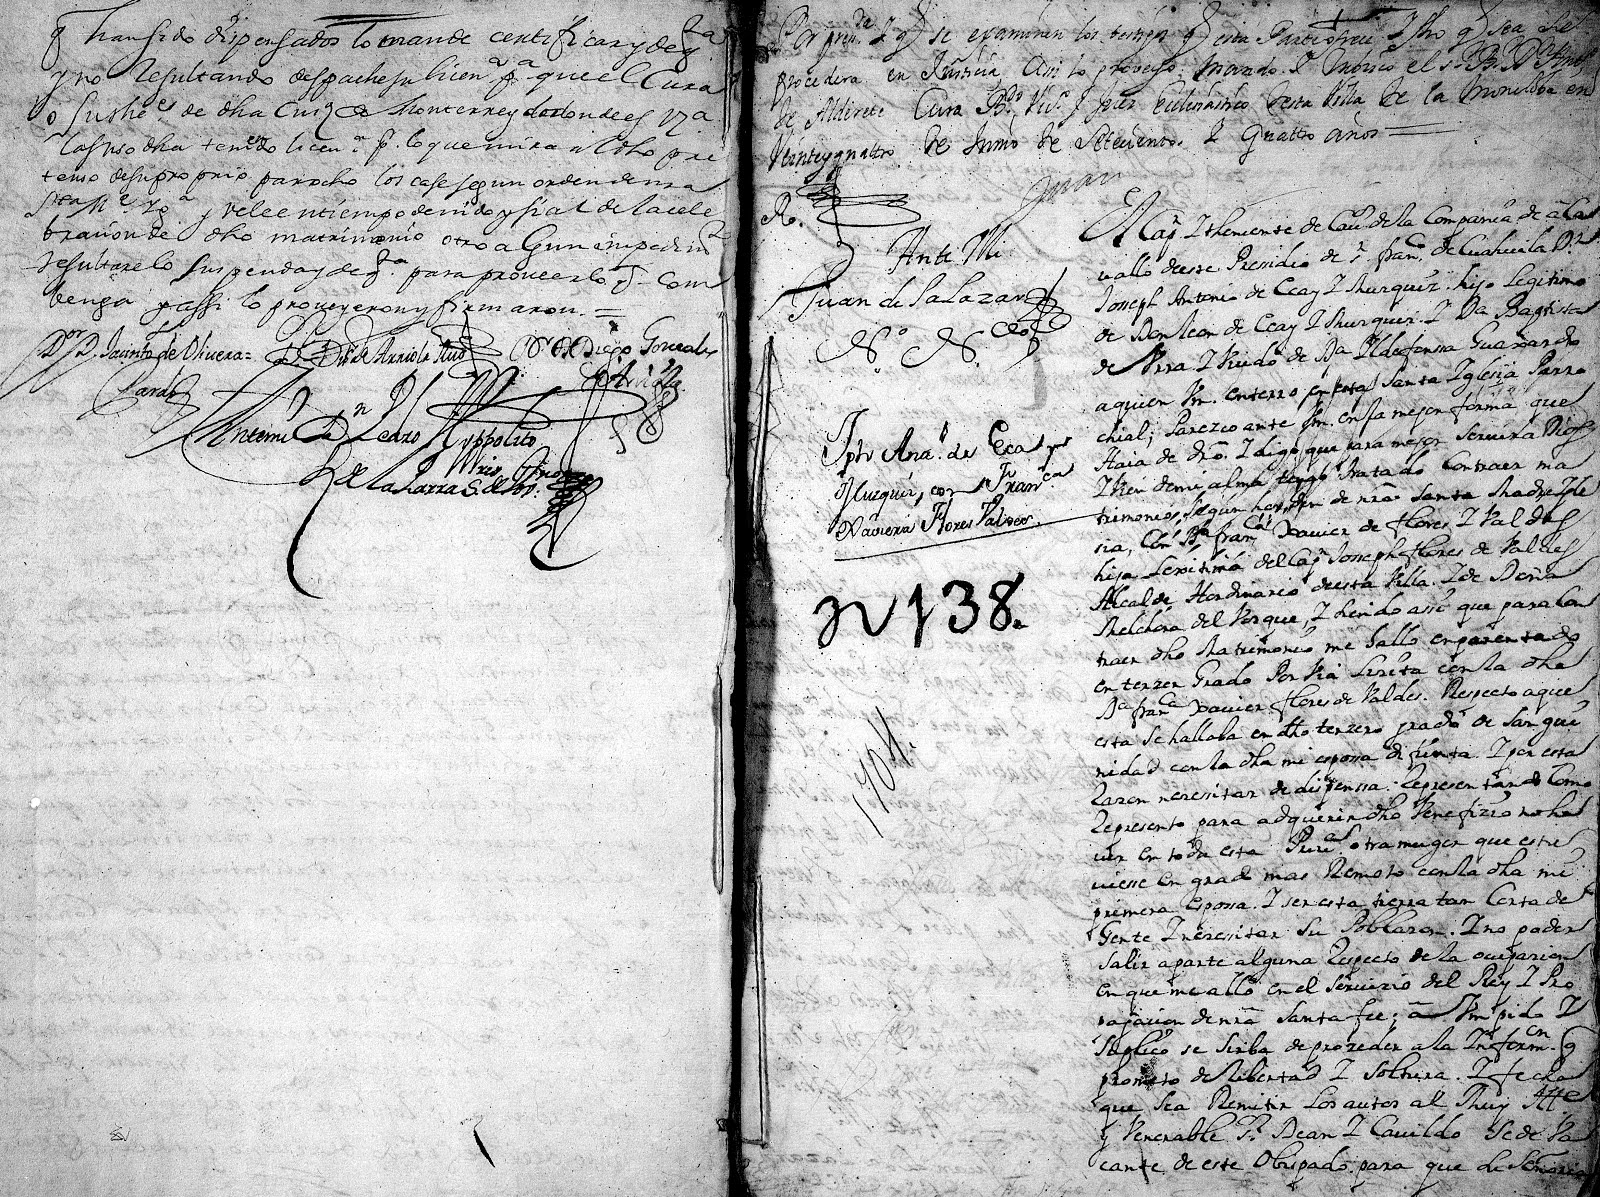 q̃ han sido dispensados lo mande certificar y de fee
y no resultando despachese licen.ª p.ª que el Cura
o su the.e de dha Ciu.d de Monterrey donde es Vz.ª
la suso dha teniendo licen.ª p.r lo que mira al dho pre
tenso de su proprio parrocho los case segun orden de nra
S.ta M.e Yg.ª y vele en tiempo devido y si al de la cele
bracion de dho matrimonio otro algun impedim.to
resultare lo suspenda y de q.ta para proveer lo q̃ com
benga y assi lo proveyeron y firmaron. =
D.or D. Jacinto de Olivera =
Pardo
D.r de Arriola Rico
D. Diego Gonzales
Antemi
Pedro Hyppolito
de la Parra S. de Gov.
y q̃ se examinen los testigos q̃ esta Parte
procedera en Justicia, Asi lo proveyo, mando, y
de Alderete Cura B.do Vic.º y Juez Ecclesiastico desta Villa de la Monclova en
Veinte y quattro de Junio de Setecientos y Quattro años =
Ante Mi
Juan de Salazar
N.º N.
El Cap. I theniente de Cau.n de la Compañia de a Ca
vallo deeste Presidio de S. fran.co de Cuahuila D.n
Joseph Antonio de Ecay I Murquiz. hijo Legitimo
de Don Leon de Ecay I Murquiz. I D.ª Baptista
de Vrra I Viudo de D.ª Ildefonsa Guaxardo
a quien Vm. enterro en esta Santa Iglesia Parro
chial; Parezco ante Vm. en la mejor forma que
Haia de dro. I digo que para mejor servir a Dios
I bien de mi alma tengo tratado Contraer ma
trimonio, segun horden de nra Santa Madre Igle
sia, Con D.ª fran.ca Xavier de flores I Valdes
hija Lexitima del Cap. Joseph flores de Valdes
Alcalde Hordinario deesta Villa. I de Doña
Melchora del Vosque, I siendo assi que para Con
traer dho Matrimonio me hallo enparentado
en terzer Grado Por Via Lizita con la dha
D.ª fran.ca Xavier flores de Valdes. Respecto a que
esta se hallaba en dho terzero grado de sangui
nidad con la dha mi espossa difunta. I por esta
Razon nezesitar de dispenssa. Representando Como
Represento para adquerir dho Venefizio no ha
ver en toda esta Prov.ª otra muger que estu
viesse en grado mas Remoto con la dha mi
primera Espossa. I ser esta tierra tan Corta de
Gente I nezesitar Su Poblazon. I no poder
Salir a parte alguna Respecto de la ocupacion
en que me allo en el Servizio del Rey I Pro
pagacion de nrã Santa fee; a Vm pido I
Suplico se Sirba de prozeder a la Inform.on q̃
prometo de libertad I Soltura. I fecha
que sea Remitir Los autos al Muy Ill.e
y Venerable S.r Dean I Cavildo Sede Va
cante de este Obispado. para que Su Señoria
Jph Ant.º de Ecay
y Muzquiz, con Fran.ca
Xaviera Flores Valdes.
N 138.
1704.